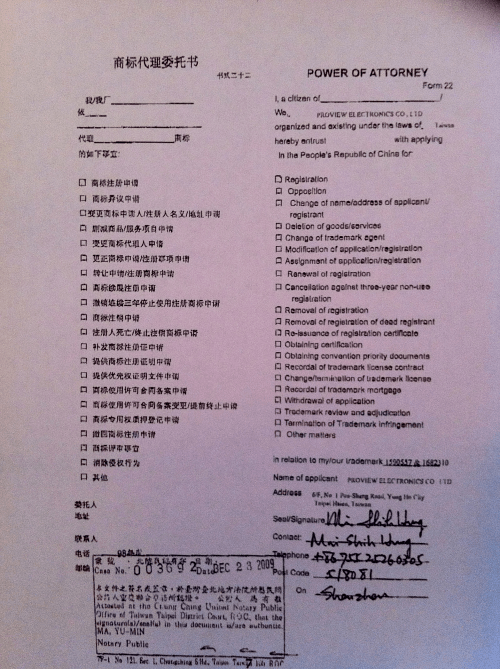 商标代理委托书
书式二十二
我/我厂
依
代理 商标
的如下事宜:
□ 商标注册申请
□ 商标异议申请
□变更商标申请人/注册人名义/地址申请
□ 删减商品/服务项目申请
□ 变更商标代理人申请
□ 更正商标申请/注册事项申请
□ 转让申请/注册商标申请
□ 商标续展注册申请
□ 撤销连续三年停止使用注册商标申请
□ 商标注销申请
□ 注册人死亡/终止注销商标申请
□ 补发商标注册证申请
□ 提供商标注册证明申请
□ 提供优先权证明文件申请
□ 商标使用许可合同备案申请
□ 商标使用许可合同备案变更/提前终止申请
□ 商标专用权质押登记申请
□ 撤回商标注册申请
□ 商标评审事宜
□ 消除侵权行为
□ 其他
委托人
地址
联系人
电话
邮编
POWER OF ATTORNEY
Form 22
I, a citizen of /
We, PROVIEW ELECTRONICS CO., LTD
organized and existing under the laws of Taiwan
hereby entrust with applying
in the People's Republic of China for:
□ Registration
□ Opposition
□ Change of name/address of applicant/
registrant
□ Deletion of goods/services
□ Change of trademark agent
□ Modification of application/registration
□ Assignment of application/registration
□ Renewal of registration
□ Cancellation against three-year non-use
registration
□ Removal of registration
□ Removal of registration of dead registrant
□ Re-issuance of registration certificate
□ Obtaining certification
□ Obtaining convention priority documents
□ Recordal of trademark license contract
□ Change/termination of trademark license
□ Recordal of trademark mortgage
□ Withdrawal of application
□ Trademark review and adjudication
□ Termination of Trademark Infringement
□ Other matters
in relation to my/our trademark 1590557 & 1682310
Name of applicant PROVIEW ELECTRONICS CO., LTD
Address 6/F, No 1 Pao-Sheng Road, Yung Ho City
Taipei Hsien, Taiwan
Seal/Signature
Contact: Mai Shih Hung
Telephone +86 755 25260305
Post Code 518081
On Shenzhen
Case No. 003692 Date DEC 23 2009
Attested at the Chung Ching United Notary Public
Office of Taiwan Taipei District Court, ROC, that the
signature(s)/seal(s) in this document is/are authentic.
MA, YU-MIN
Notary Public
7F-1 No 121, Sec. 1, Chongching S Rd., Taipei Taiwan ROC